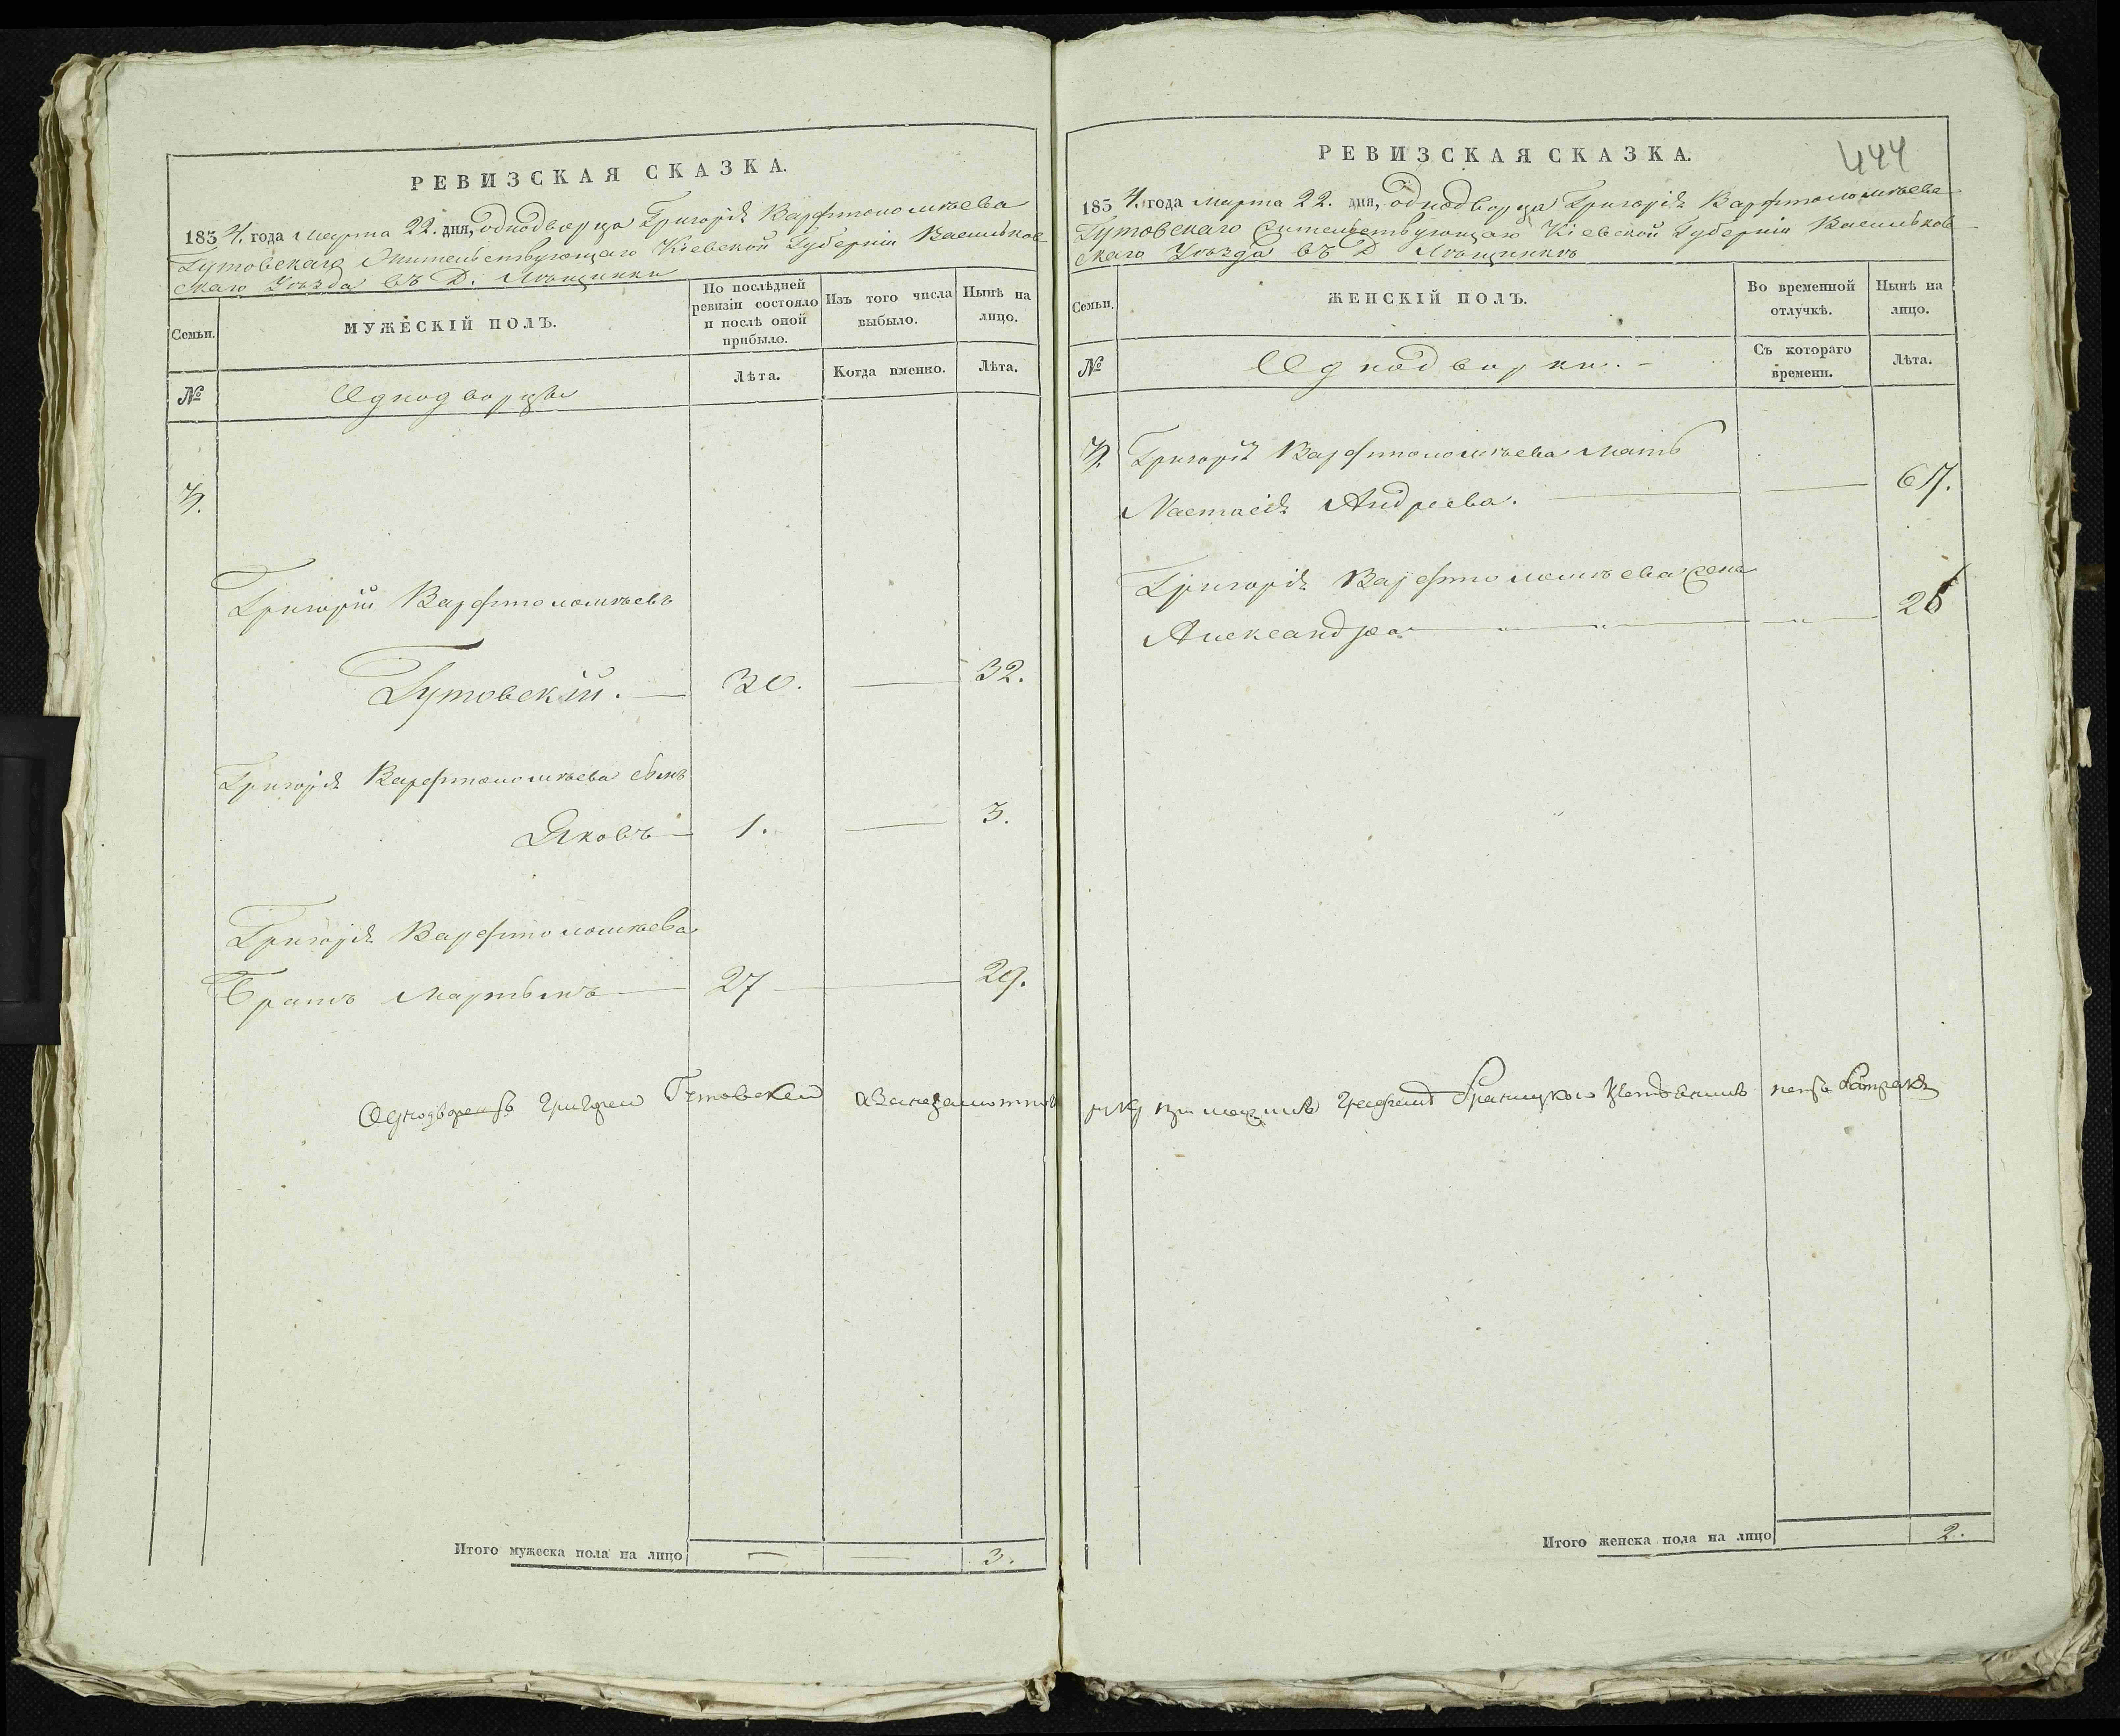 РЕВИЗСКАЯ СКАЗКА.
1834. года Марта 22. дня, однодворца Григорія Варфтоломѣева
Гутовскаго Жительствующаго Кіевской Губерніи Васильков-
скаго Уѣзда въ Д.
Семьи.
МУЖЕСКІЙ ПОЛЪ.
По послѣдней
ревизіи состояло
и послѣ оной
прибыло.
Изъ того числа
выбыло.
Нынѣ на
лицо.
№
Однодворцы
Лѣта.
Когда именно.
Лѣта.
Григорій Варфтоломѣевъ
Гутовскій. 30. 32.
Григорія Варфтоломѣева сынъ
Яковъ 1. 3.
Григорія Варфтоломѣева
Братъ Мартынъ 27 29.
Однодворецъ Григорей Гутовскей
Итого мужеска пола на лицо 3.
444
РЕВИЗСКАЯ СКАЗКА.
1834. года Марта 22. дня, однодворца Григорія Варфтоломѣева
Гутовскаго Жительствующаго Кіевской Губерніи Васильков-
скаго Уѣзда въ Д
Семьи.
ЖЕНСКІЙ ПОЛЪ.
Во временной
отлучкѣ.
Нынѣ на
лицо.
№
Однодворки.
Съ котораго
времени.
Лѣта.
Григорія Варфтоломѣева Мать
Настасія Андреева. 67.
Григорія Варфтоломѣева жена
Александра 26
Итого женска пола на лицо 2.